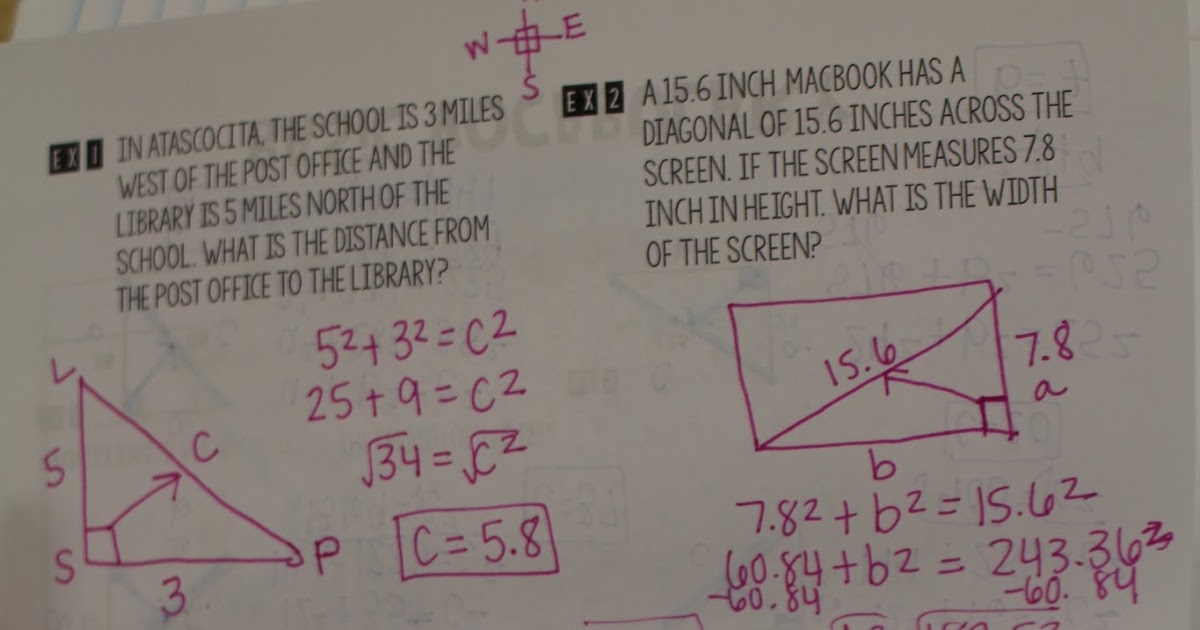 W E
S
EX 1 IN ATASCOCITA, THE SCHOOL IS 3 MILES
WEST OF THE POST OFFICE AND THE
LIBRARY IS 5 MILES NORTH OF THE
SCHOOL. WHAT IS THE DISTANCE FROM
THE POST OFFICE TO THE LIBRARY?
5² + 3² = C²
25 + 9 = C²
√34 = √C²
C = 5.8
L
5
C
S
3
P
EX 2 A 15.6 INCH MACBOOK HAS A
DIAGONAL OF 15.6 INCHES ACROSS THE
SCREEN. IF THE SCREEN MEASURES 7.8
INCH IN HEIGHT. WHAT IS THE WIDTH
OF THE SCREEN?
15.6
7.8
a
b
7.8² + b² = 15.6²
60.84 + b² = 243.36²
-60.84 -60.84